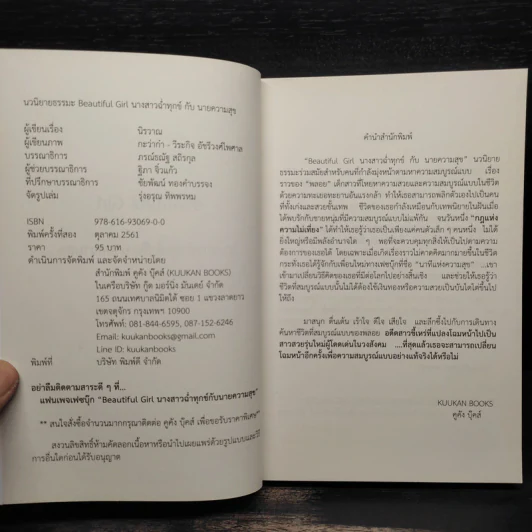 นวนิยายธรรมะ Beautiful Girl นางสาวฉ่ำทุกข์ กับ นายความสุข
ผู้เขียนเรื่อง นิรวาณ
ผู้เขียนภาพ กะว่าก๋า - วีระกิจ อัชรีวงศ์ไพศาล
บรรณาธิการ ภรณ์ธณัฐ สถิรกุล
ผู้ช่วยบรรณาธิการ ฐิภา จิ๋วแก้ว
ที่ปรึกษาบรรณาธิการ ชัยพัฒน์ ทองคำบรรจง
จัดรูปเล่ม รุ่งอรุณ ทิพพรหม
ISBN 978-616-93069-0-0
พิมพ์ครั้งที่สอง ตุลาคม 2561
ราคา 95 บาท
ดำเนินการจัดพิมพ์ และจัดจำหน่ายโดย
สำนักพิมพ์ คูคัง บุ๊คส์ (KUUKAN BOOKS)
ในเครือบริษัท กู๊ด มอร์นิ่ง มันเดย์ จำกัด
165 ถนนเทศบาลนิมิตใต้ ซอย 1 แขวงลาดยาว
เขตจตุจักร กรุงเทพฯ 10900
โทรศัพท์: 081-844-6595, 087-152-6246
Email: kuukanbooks@gmail.com
Line ID: kuukanbooks
พิมพ์ที่ บริษัท พิมพ์ดี จำกัด
อย่าลืมติดตามสาระดี ๆ ที่...
แฟนเพจเฟซบุ๊ก "Beautiful Girl นางสาวฉ่ำทุกข์กับนายความสุข"
** สนใจสั่งซื้อจำนวนมากกรุณาติดต่อ คูคัง บุ๊คส์ เพื่อขอรับราคาพิเศษ**
สงวนลิขสิทธิ์ห้ามคัดลอกเนื้อหาหรือนำไปเผยแพร่ด้วยรูปแบบและวิธี
การอื่นใดก่อนได้รับอนุญาต
คำนำสำนักพิมพ์
"Beautiful Girl นางสาวฉ่ำทุกข์ กับ นายความสุข" นวนิยาย
ธรรมะร่วมสมัยสำหรับคนที่กำลังมุ่งหน้าตามหาความสมบูรณ์แบบ เรื่อง
ราวของ "พลอย" เด็กสาวที่ไขว่คว้าความสวยและความสมบูรณ์แบบในชีวิต
ด้วยความทะเยอทะยานอันแรงกล้า ทำให้เธอสามารถพลิกตัวเองไปเป็นคน
ที่ทั้งเก่งและสวยขั้นเทพ ชีวิตของเธอกำลังเหมือนกับเทพนิยายในฝันเมื่อ
ได้พบรักกับชายหนุ่มที่มีความสมบูรณ์แบบไม่แพ้กัน จนวันหนึ่ง "กฎแห่ง
ความไม่เที่ยง" ได้ทำให้รู้ว่าเธอเป็นเพียงแค่คนตัวเล็ก ๆ คนหนึ่ง ไม่ได้
ยิ่งใหญ่หรือมีพลังอำนาจใด ๆ พอที่จะควบคุมทุกสิ่งให้เป็นไปตามความ
ต้องการของเธอได้ โดยเฉพาะเมื่อเกิดเรื่องราวไม่คาดคิดมากมายขึ้นในชีวิต
กระทั่งเธอได้รู้จักกับเพื่อนใหม่ทางเฟซบุ๊กที่ชื่อ "นาทีแห่งความสุข" ...เขา
เข้ามาเปลี่ยนวิธีคิดของเธอที่มีต่อโลกไปอย่างสิ้นเชิง และช่วยให้เธอรู้ว่า
ชีวิตที่สมบูรณ์แบบนั้นไม่ได้ต้องใช้เงินทองหรือความสวยเป็นบันไดไต่ขึ้นไป
ให้ถึง
มาสนุก ตื่นเต้น เร้าใจ ดีใจ เสียใจ และลึกซึ้งไปกับการเดินทาง
ค้นหาชีวิตที่สมบูรณ์แบบของพลอย อดีตสาวขี้เหร่ที่แปลงโฉมหน้าไปเป็น
สาวสวยรุ่นใหม่ผู้โดดเด่นในวงสังคม ....ที่สุดแล้วเธอจะสามารถเปลี่ยน
โฉมหน้าอีกครั้งเพื่อความสมบูรณ์แบบอย่างแท้จริงได้หรือไม่
KUUKAN BOOKS
คูคัง บุ๊คส์